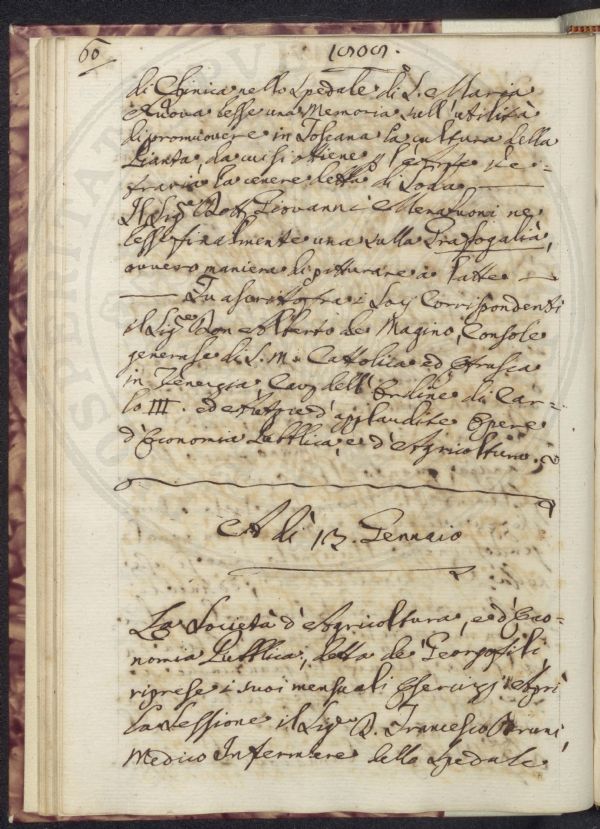 60
di Chimica nello Spedale di S. Maria
Nuova lesse una Memoria sull'utilità
di promuovere in Toscana la cultura della
Pianta, da cui si ottiene
la cenere detta di Soda
Il Sig.e Dott. Giovanni Menabuoni ne
lesse finalmente una sulla Grassogalia,
ovvero maniera di pitturare a latte
Fu ascritto fra i Socj Corrispondenti
il Sig.e Don Alberto de Magino, Console
generale di S. M. Cattolica ed Etrusca
in Venezia, Cav. dell'Ordine di Car=
lo III. ed d'applaudite Opere
d'Economia Pubblica, e d'Agricoltura.
A dì 13. Gennaio
La Società d'Agricoltura, e d'Eco=
nomia Pubblica, detta de' Georgofili,
riprese i suoi mensuali Esercizj. Aprì
la Sessione il Sig.e D. Francesco Bruni,
Medico Infermiere dello Spedale